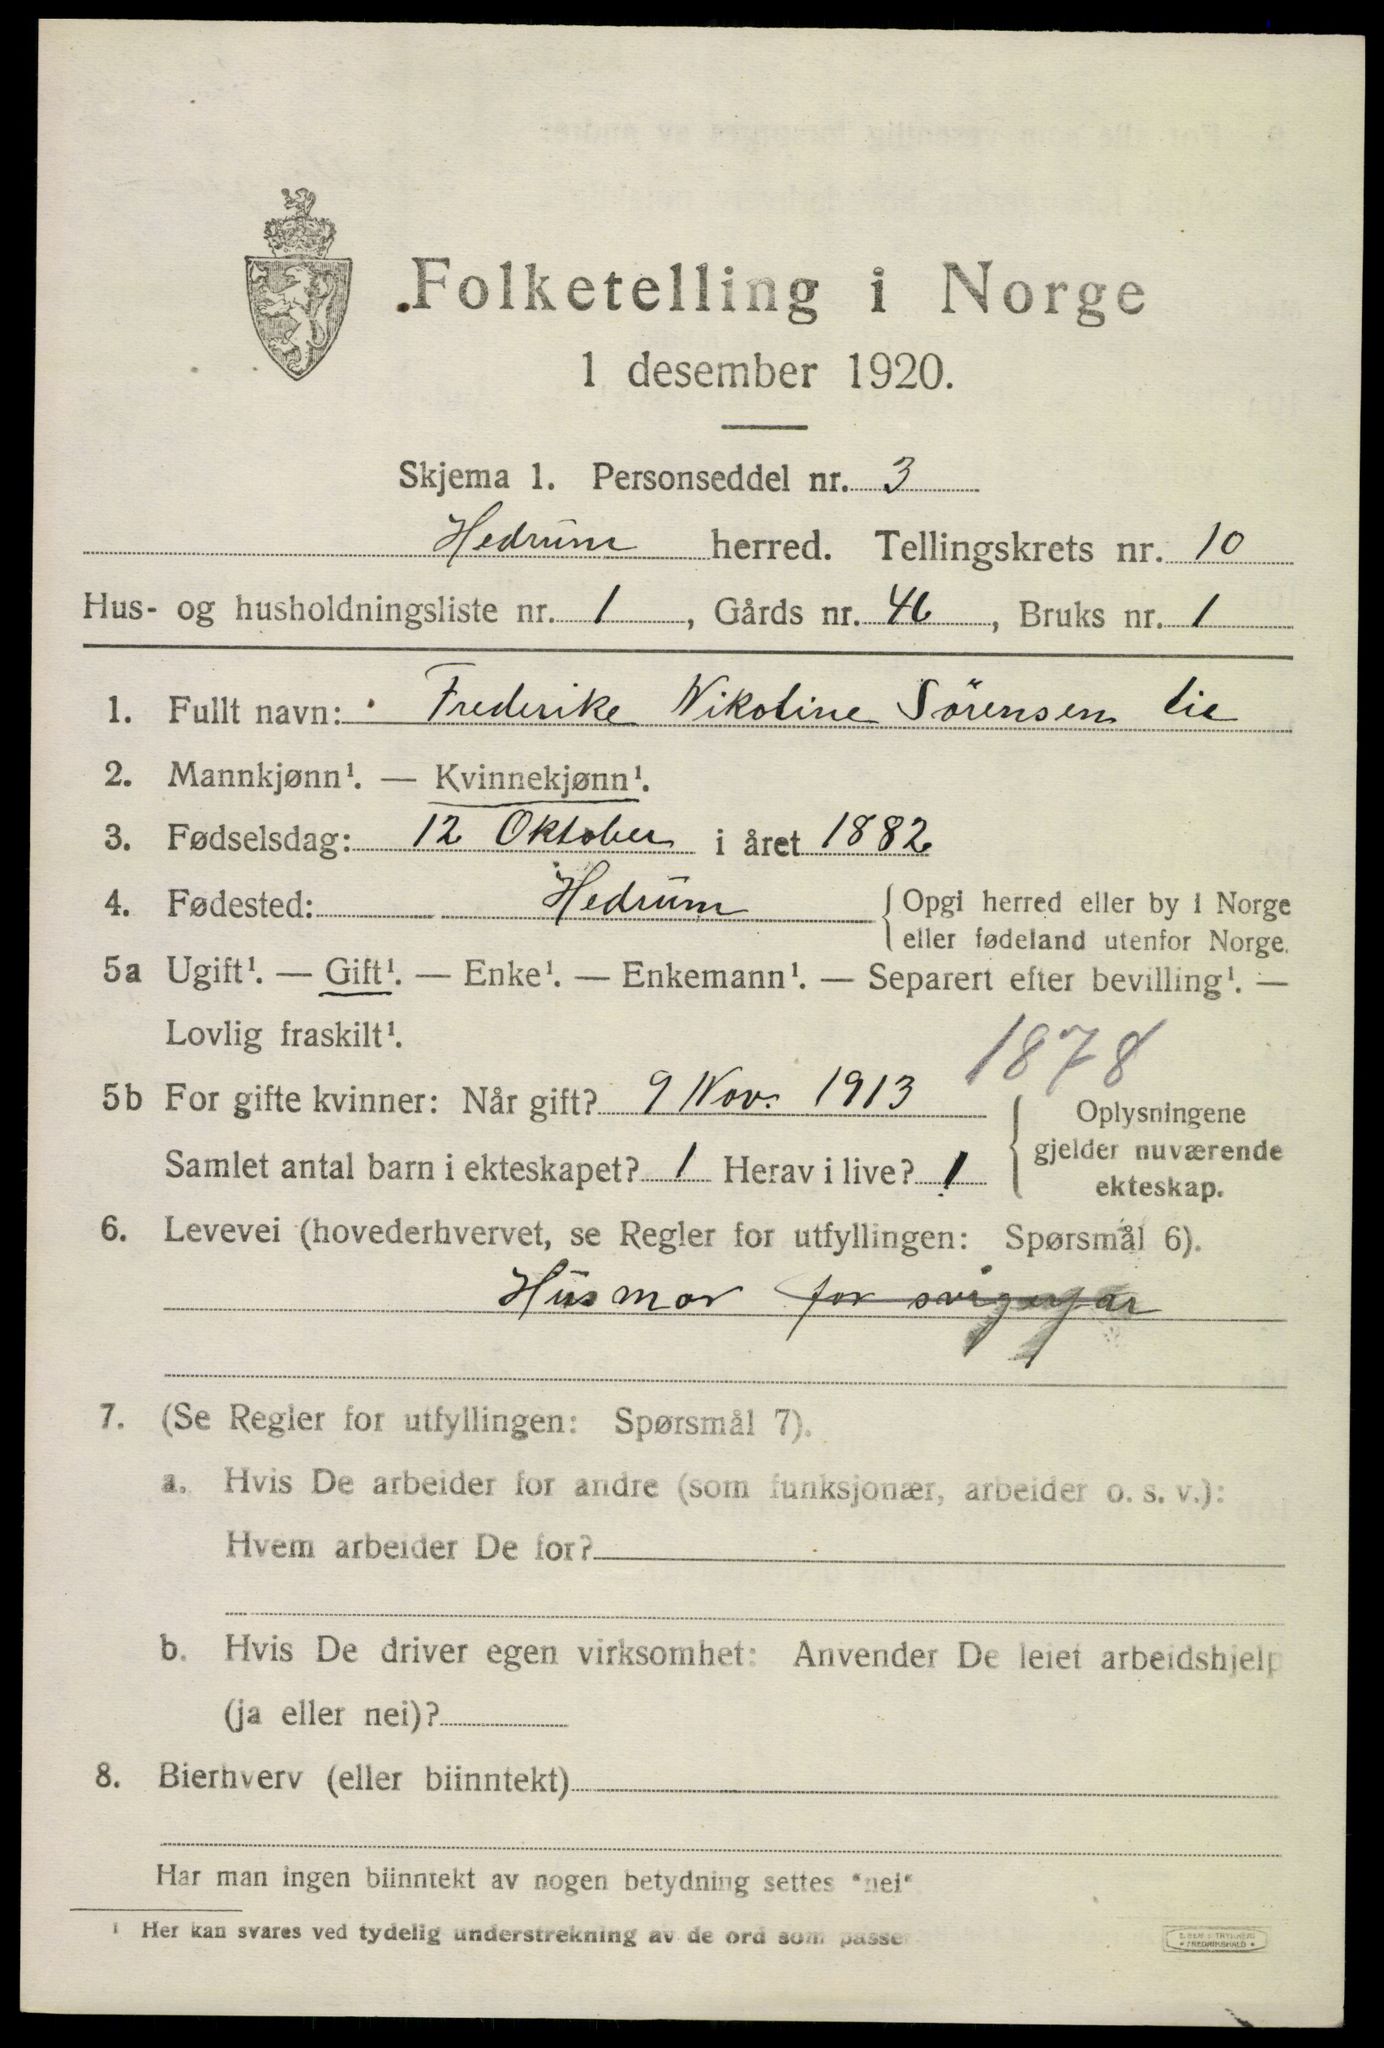 Folketelling i Norge
1 desember 1920.
Skjema 1. Personseddel nr. 3
Hedrum herred. Tellingskrets nr. 10
Hus- og husholdningsliste nr. 1, Gårds nr. 46, Bruks nr. 1
1. Fullt navn: Frederike Nikoline Sörensen Lie
2. Mannkjønn¹. — Kvinnekjønn¹.
3. Fødselsdag: 12 Oktober i året 1882
4. Fødested: Hedrum { Opgi herred eller by i Norge
eller fødeland utenfor Norge.
5a Ugift¹. — Gift¹. — Enke¹. — Enkemann¹. — Separert efter bevilling¹. —
Lovlig fraskilt¹.
1878
5b For gifte kvinner: Når gift? 9 Nov. 1913
Samlet antal barn i ekteskapet? 1 Herav i live? 1
{ Oplysningene
gjelder nuværende
ekteskap.
6. Levevei (hovederhvervet, se Regler for utfyllingen: Spørsmål 6).
Husmor for svigerfar
7. (Se Regler for utfyllingen: Spørsmål 7).
a. Hvis De arbeider for andre (som funksjonær, arbeider o. s. v.):
Hvem arbeider De for?
b. Hvis De driver egen virksomhet: Anvender De leiet arbeidshjelp
(ja eller nei)?
8. Bierhverv (eller biinntekt)
Har man ingen biinntekt av nogen betydning settes "nei"
¹ Her kan svares ved tydelig understrekning av de ord som passer
FREDRIKSHALD